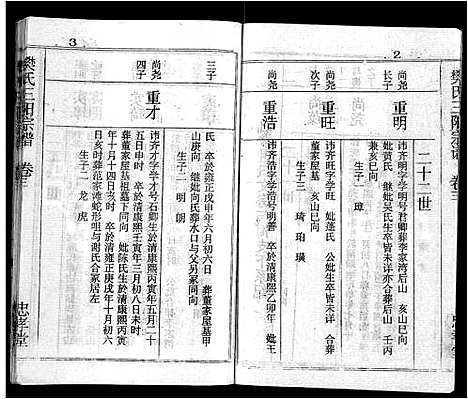 樊氏三阳宗谱 卷三
2
二十二世
尚尧
长子
重明
讳齐明字学明号君卿葬李家湾后山 壬丙
兼亥巳向
妣黄氏 继妣吴氏生卒皆未详亦合葬后山
生子一 璋
尚尧
次子
重旺
讳齐旺字学旺 妣蓬氏 公妣生卒皆未详 合葬
董家屋基 亥山巳向
生子三 琦 珀 璜
尚尧
三子
重浩
讳齐浩字学浩号明善 卒於清康熙乙卯年 妣王
氏 卒於雍正戊申年六月初六日 葬董家屋基甲
山庚向 继妣向氏葬水口与父另冢同向
生子二 明 朗
3
尚尧
四子
重才
讳齐才字学才号石卿生於清康熙丙寅年五月二十
五日申时卒於清康熙壬寅年三月初八日未时
葬董家屋基祖墓下同向 妣陈氏生於清康熙丙寅
年十月十四日子时卒於清雍正庚戌年十月初六
日亥时葬范家滩蛇形咀与谢氏合冢居左
生子二 龙 虎
樊氏三阳宗谱 卷三
忠孝堂